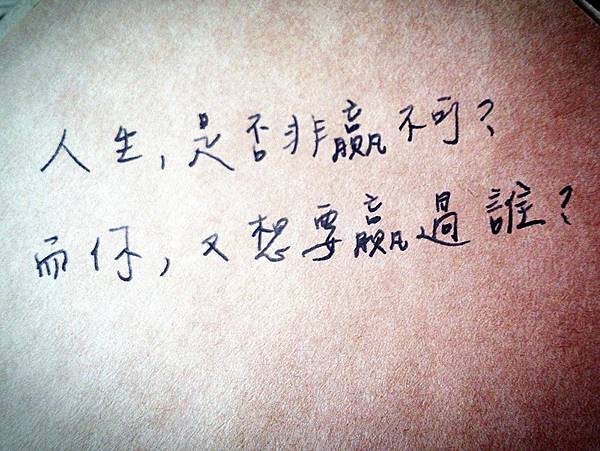 人生,是否非贏不可?
而你,又想要贏過誰?